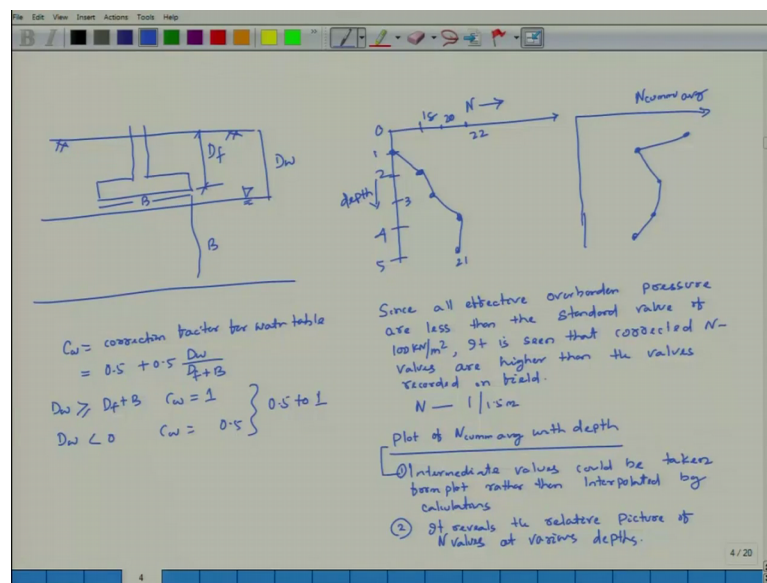 File Edit View Insert Actions Tools Help
B I
Df
Dw
B
B
Cw = correction factor for water table
= 0.5 + 0.5 Dw / Df + B
Dw ≥ Df + B Cw = 1
Dw < 0 Cw = 0.5
} 0.5 to 1
N →
18 20 22
0
1
2
3
4
5
depth
21
Ncumm avg
Since all effective overburden pressure
are less than the standard value of
100 kN/m², It is seen that corrected N-
values are higher than the values
recorded in field.
N — 1/1.5m
Plot of Ncumm avg with depth
① Intermediate values could be taken
from plot rather than Interpolated by
calculations
② It reveals the relative Picture of
N values at various depths.
4 / 20
4